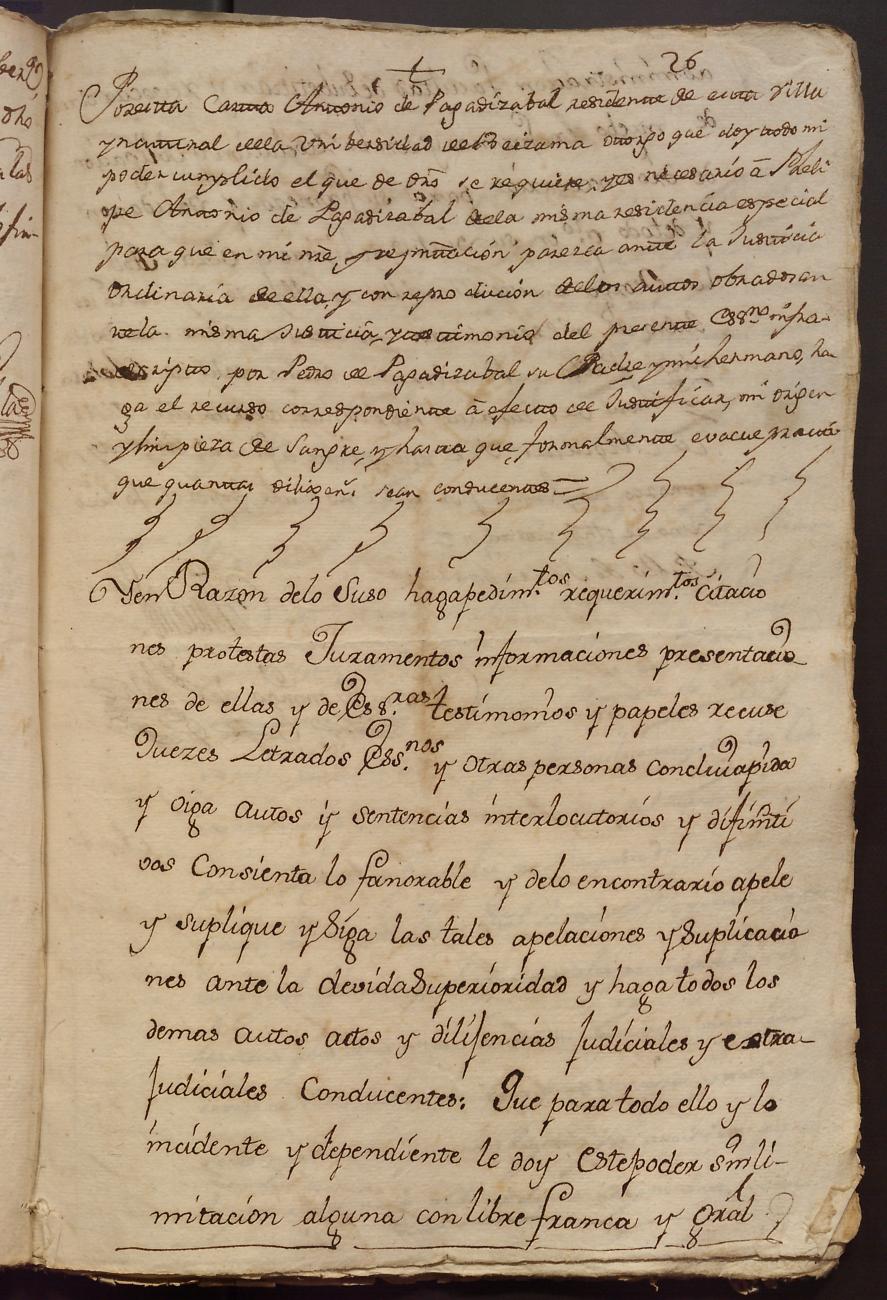 26
Por esta Carta Antonio de Pagadizabal residente de esta villa
y natural de la Universidad de Beizama otorgo que doy todo mi
poder cumplido el que de dro se requiere, y es nécesario â Pheli
pe Antonio de Pagadizabal de la misma residencia especial
para que en mi nre, y represntación parezca ante la Justicia
ordinaria de ella, y con reproducción de los autos obrados en
re la misma Justicia, y testimonio del presente Essno infra-
escripto, por Pedro de Pagadizabal su Padre y mi hermano, ha
ga el recurso correspondiente â efecto de Justificar, mi origen
y limpieza de Sangre, y hasta que formalmente evacue practi
que quantas diligens sean conducentes=
Y en Razon delo Suso haga pedim.tos requerim.tos citacio
nes protestas Juramentos informaciones presentacio
nes de ellas y de Ess.ras testimonios y papeles recuse
Juezes Letrados Ess.nos y otras personas concluia pida
y oiga autos y sentencias interlocutorios y difiniti
vos Consienta lo favorable y delo encontrario apele
y suplique y Siga las tales apelaciones y Suplicacio
nes ante la devida Superioridad y haga todos los
demas autos actos y dilijencias judiciales y extra-
judiciales Conducentes: Que para todo ello y lo
incidente y dependiente le doy este poder sin li-
mitacion alguna con libre franca y gral